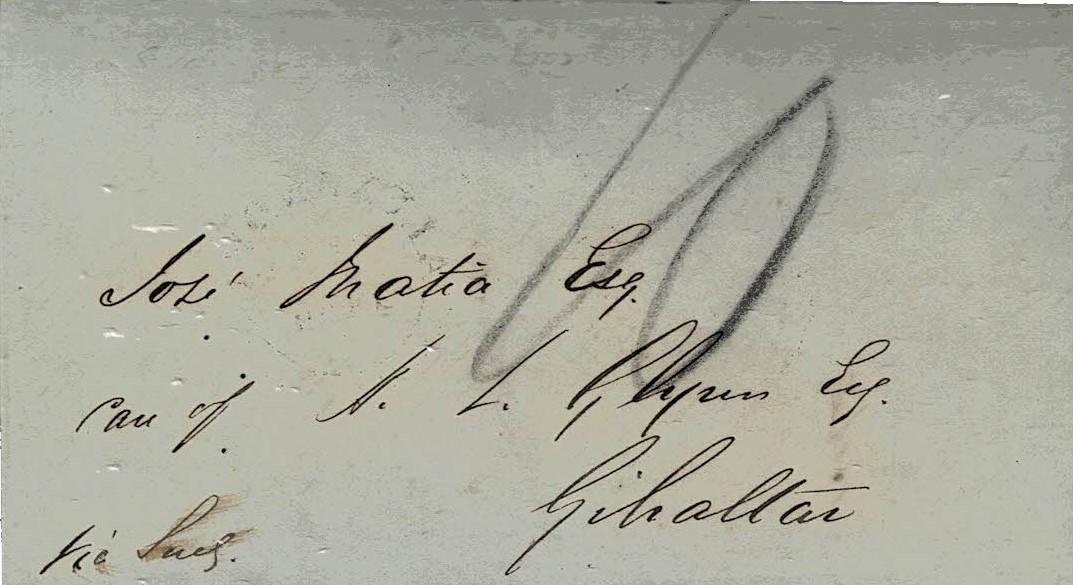 José Matia Esq.
care of H. L. Glynn Esq.
Gibraltar
via